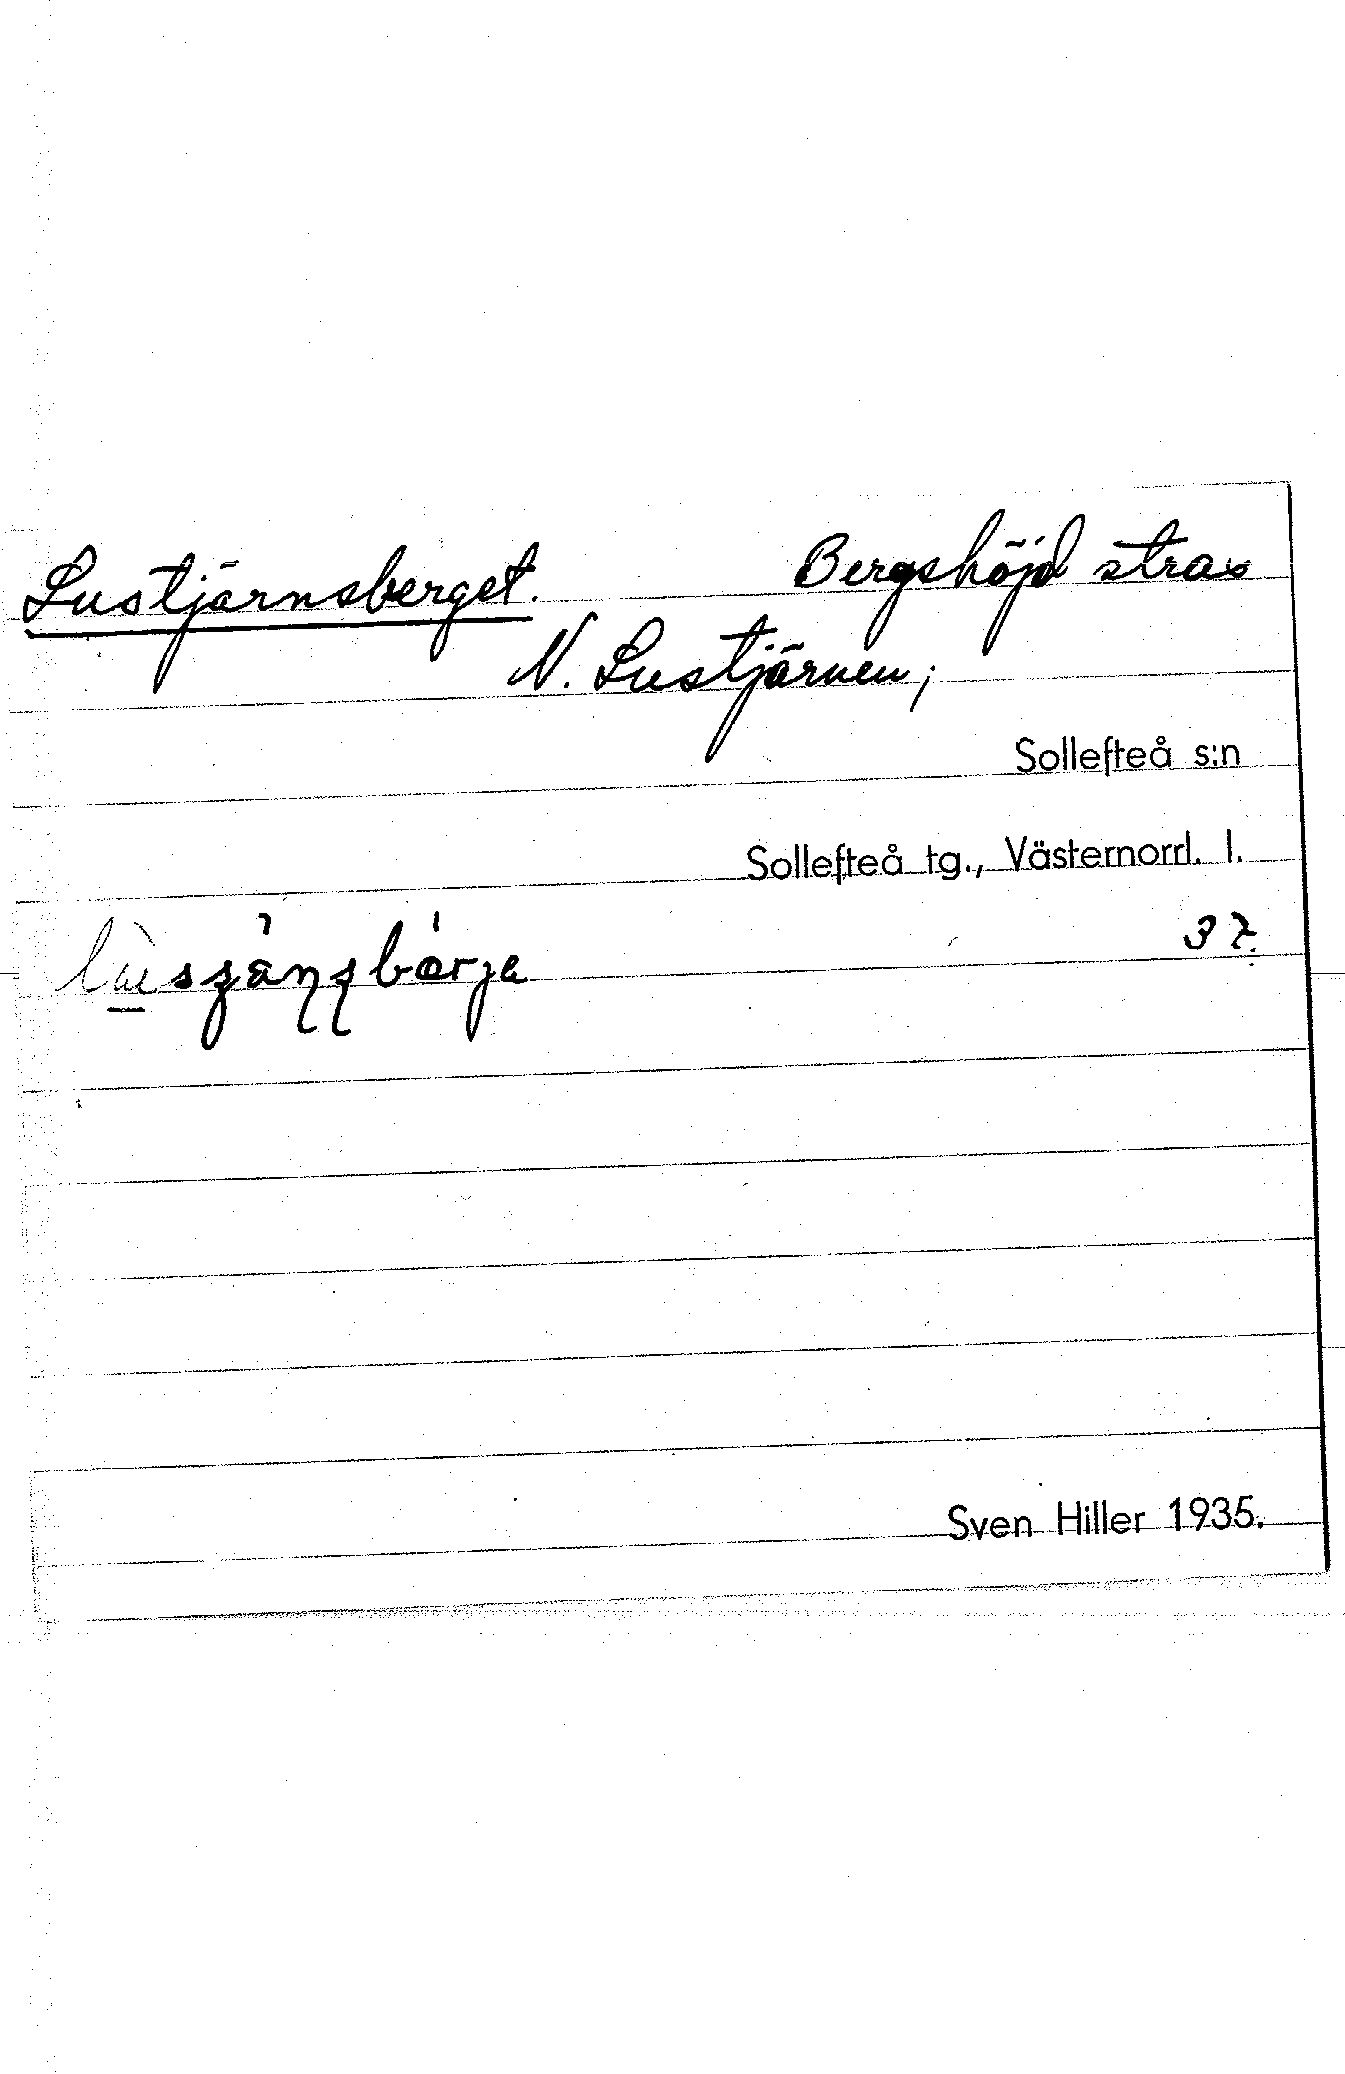 Lustjärnsberget. Bergshöjd strax
N. Lustjärnen;
Sollefteå s:n
Sollefteå tg., Västernorrl. l.
37.
Sven Hiller 1935.